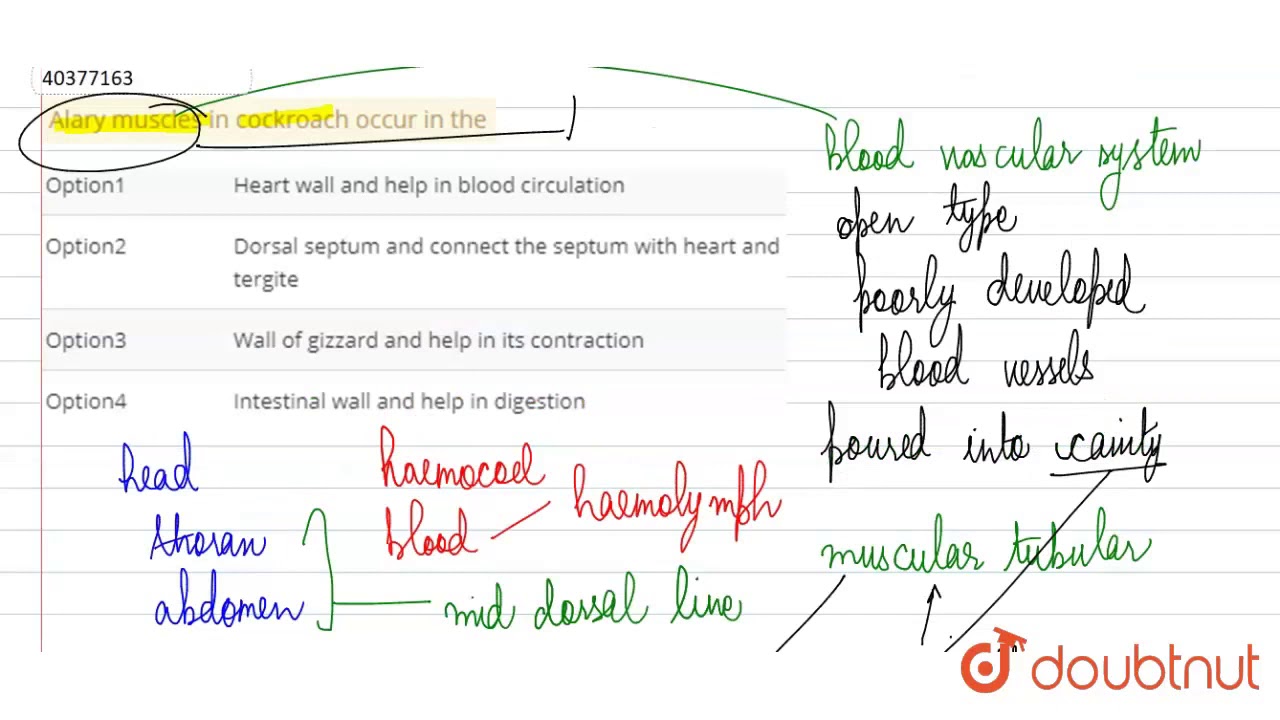 40377163
Alary muscles in cockroach occur in the
Option1 Heart wall and help in blood circulation
Option2 Dorsal septum and connect the septum with heart and
tergite
Option3 Wall of gizzard and help in its contraction
Option4 Intestinal wall and help in digestion
blood vascular system
open type
poorly developed
blood vessels
poured into cavity
muscular tubular
head
thorax
abdomen
haemocoel
blood
haemolymph
mid dorsal line
doubtnut